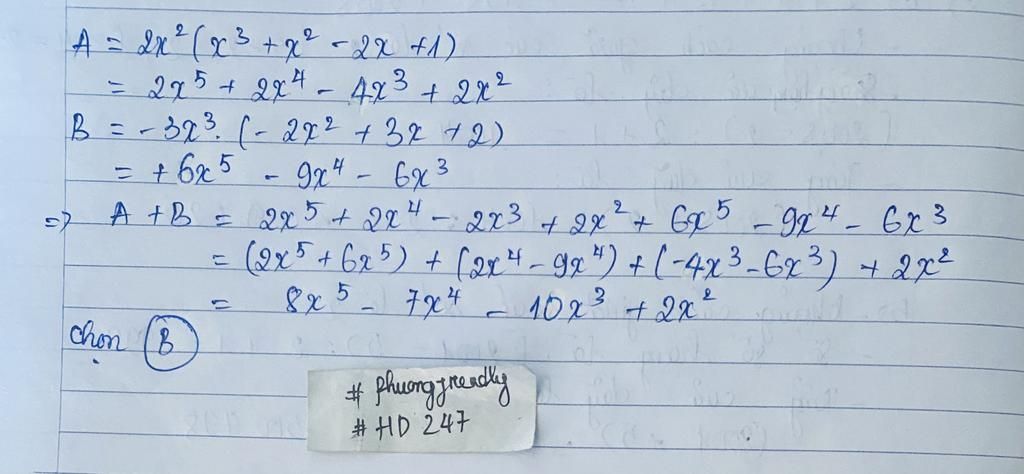 A = 2x² (x³ + x² - 2x + 1)
= 2x⁵ + 2x⁴ - 4x³ + 2x²
B = -3x³. (-2x² + 3x + 2)
= +6x⁵ - 9x⁴ - 6x³
=> A + B = 2x⁵ + 2x⁴ - 2x³ + 2x² + 6x⁵ - 9x⁴ - 6x³
= (2x⁵ + 6x⁵) + (2x⁴ - 9x⁴) + (-4x³ - 6x³) + 2x²
= 8x⁵ - 7x⁴ - 10x³ + 2x²
Chọn B
# phuongfrendly
# HD 247